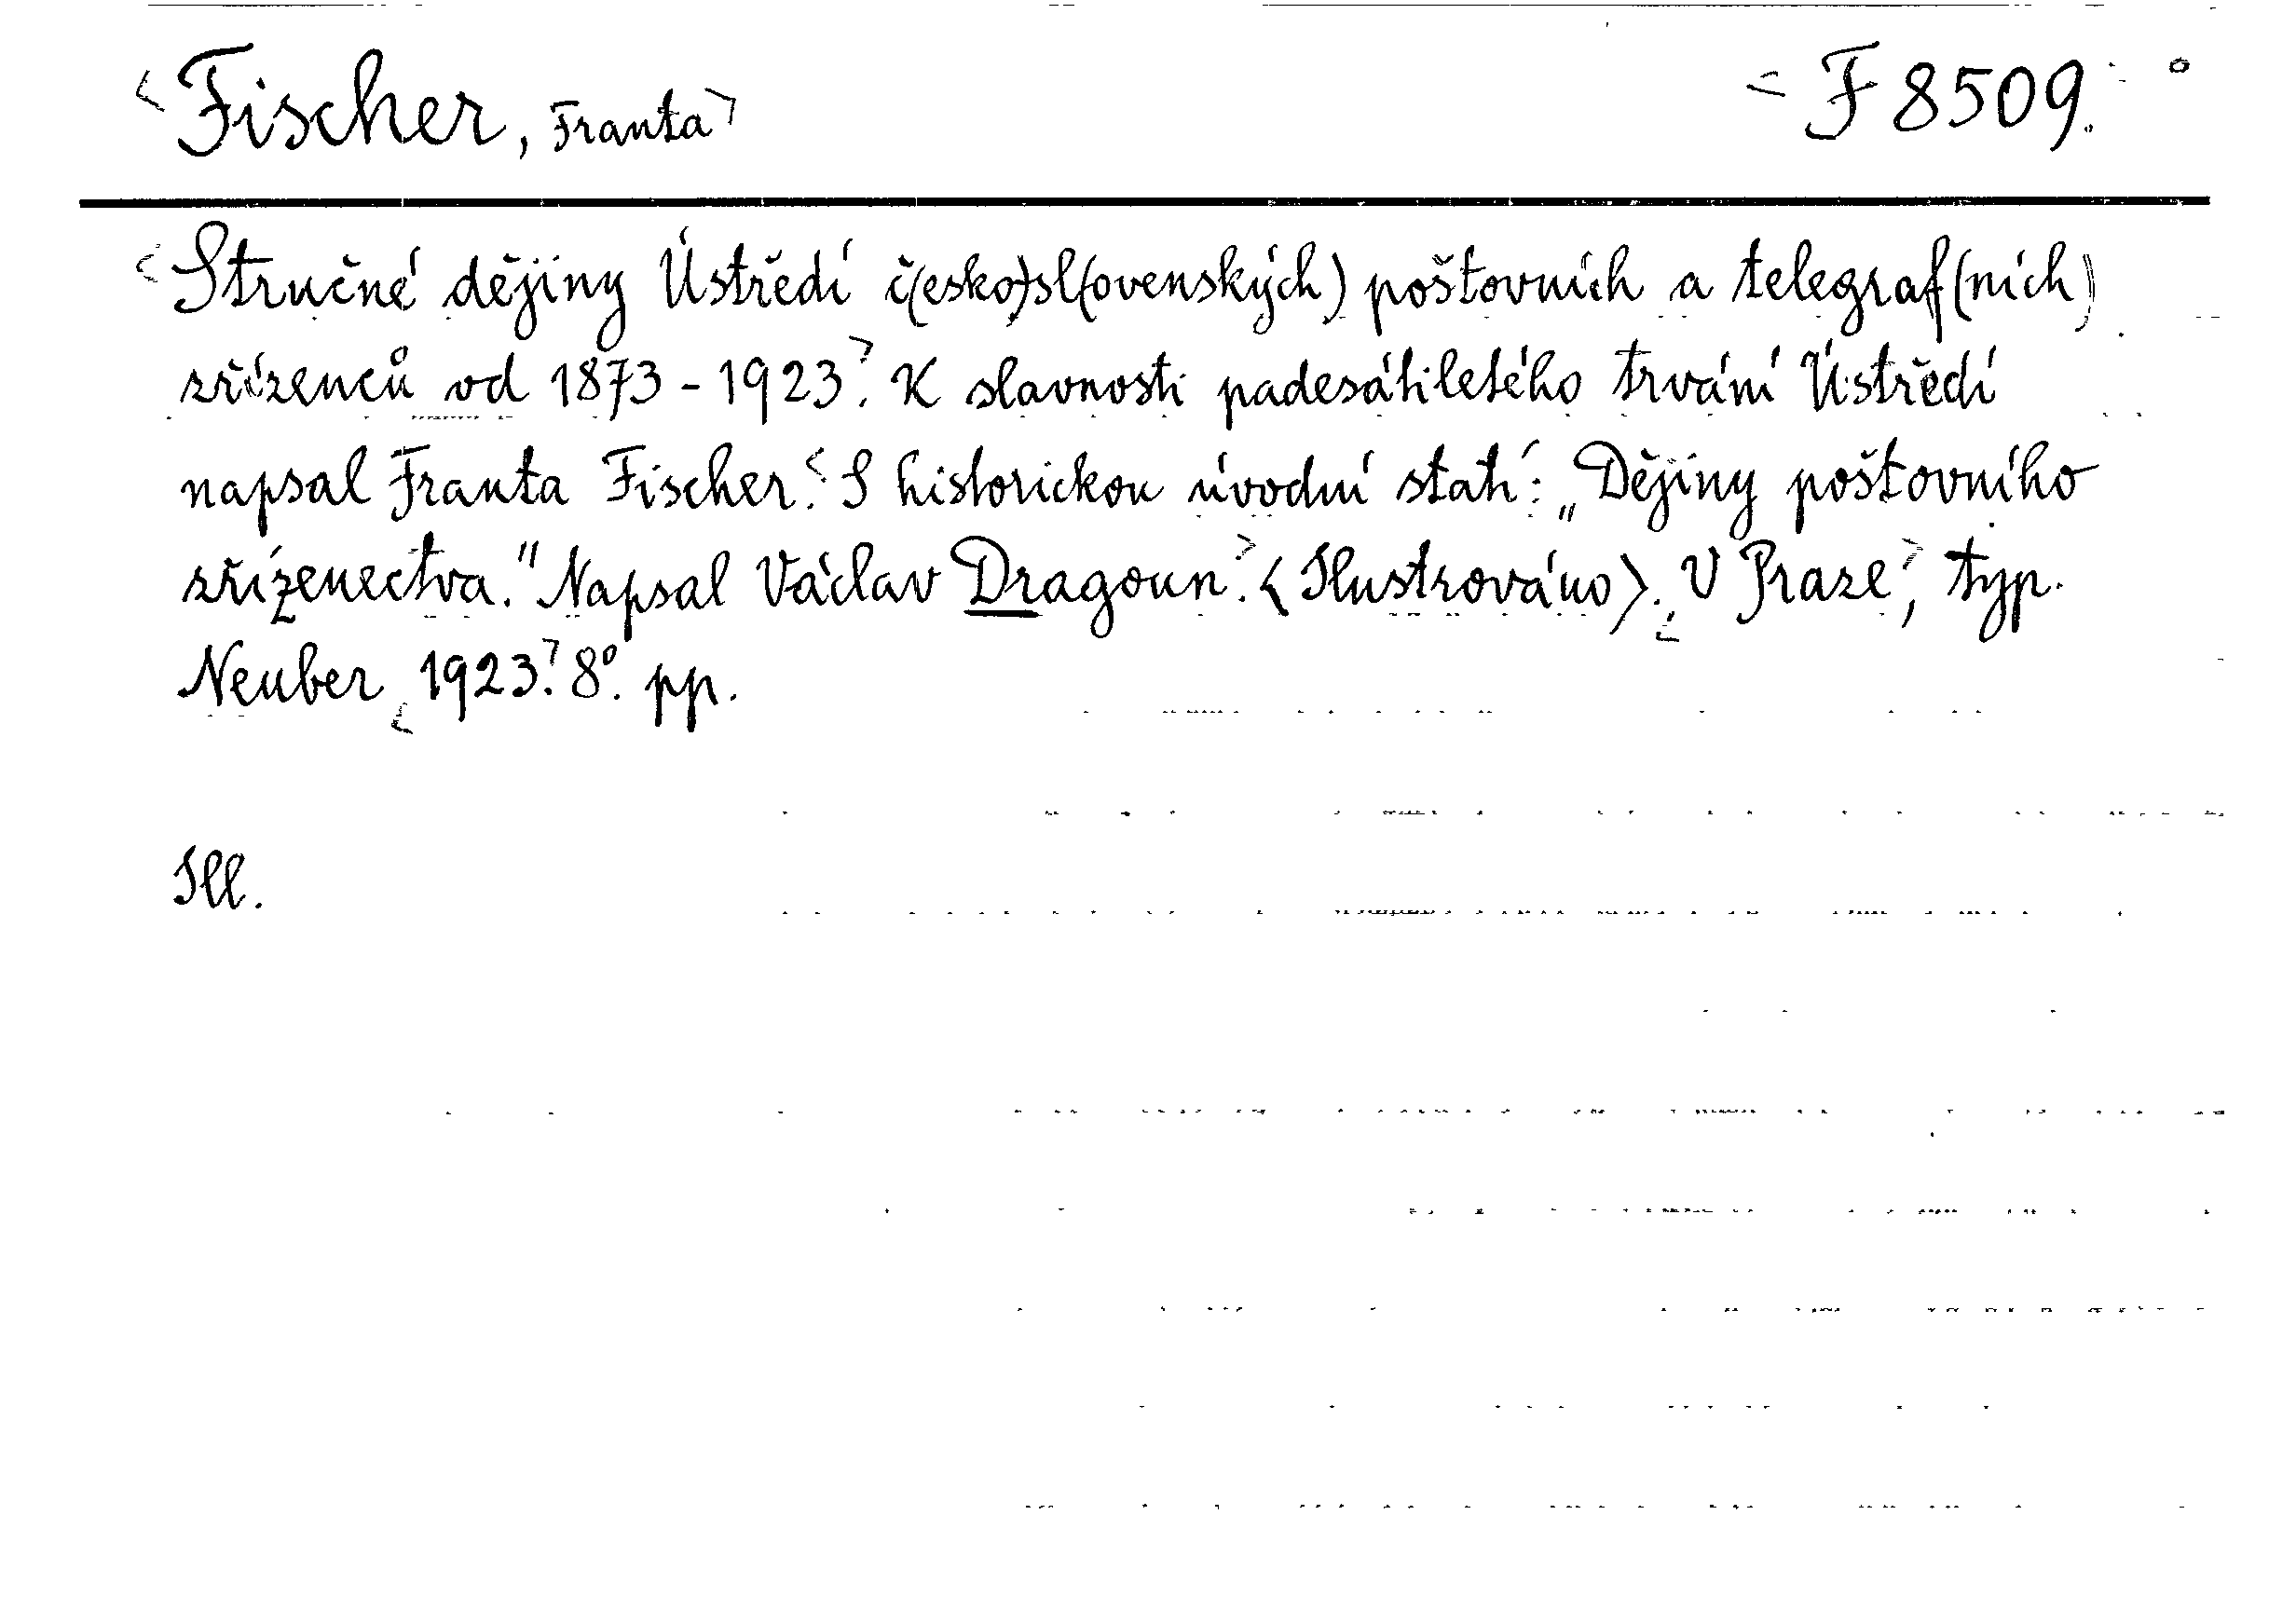 Fischer, Franta F 8509.
Stručné dějiny Ústředí č(esko)sl(ovenských) poštovních a telegraf(ních)
zřízenců od 1873-1923. K slavnosti padesátiletého trvání Ústředí
napsal Franta Fischer. S historickou úvodní statí: „Dějiny poštovního
zřízenectva." Napsal Václav Dragoun. <Ilustrováno>. V Praze, typ.
Neuber 1923. 8°. pp.
Ill.